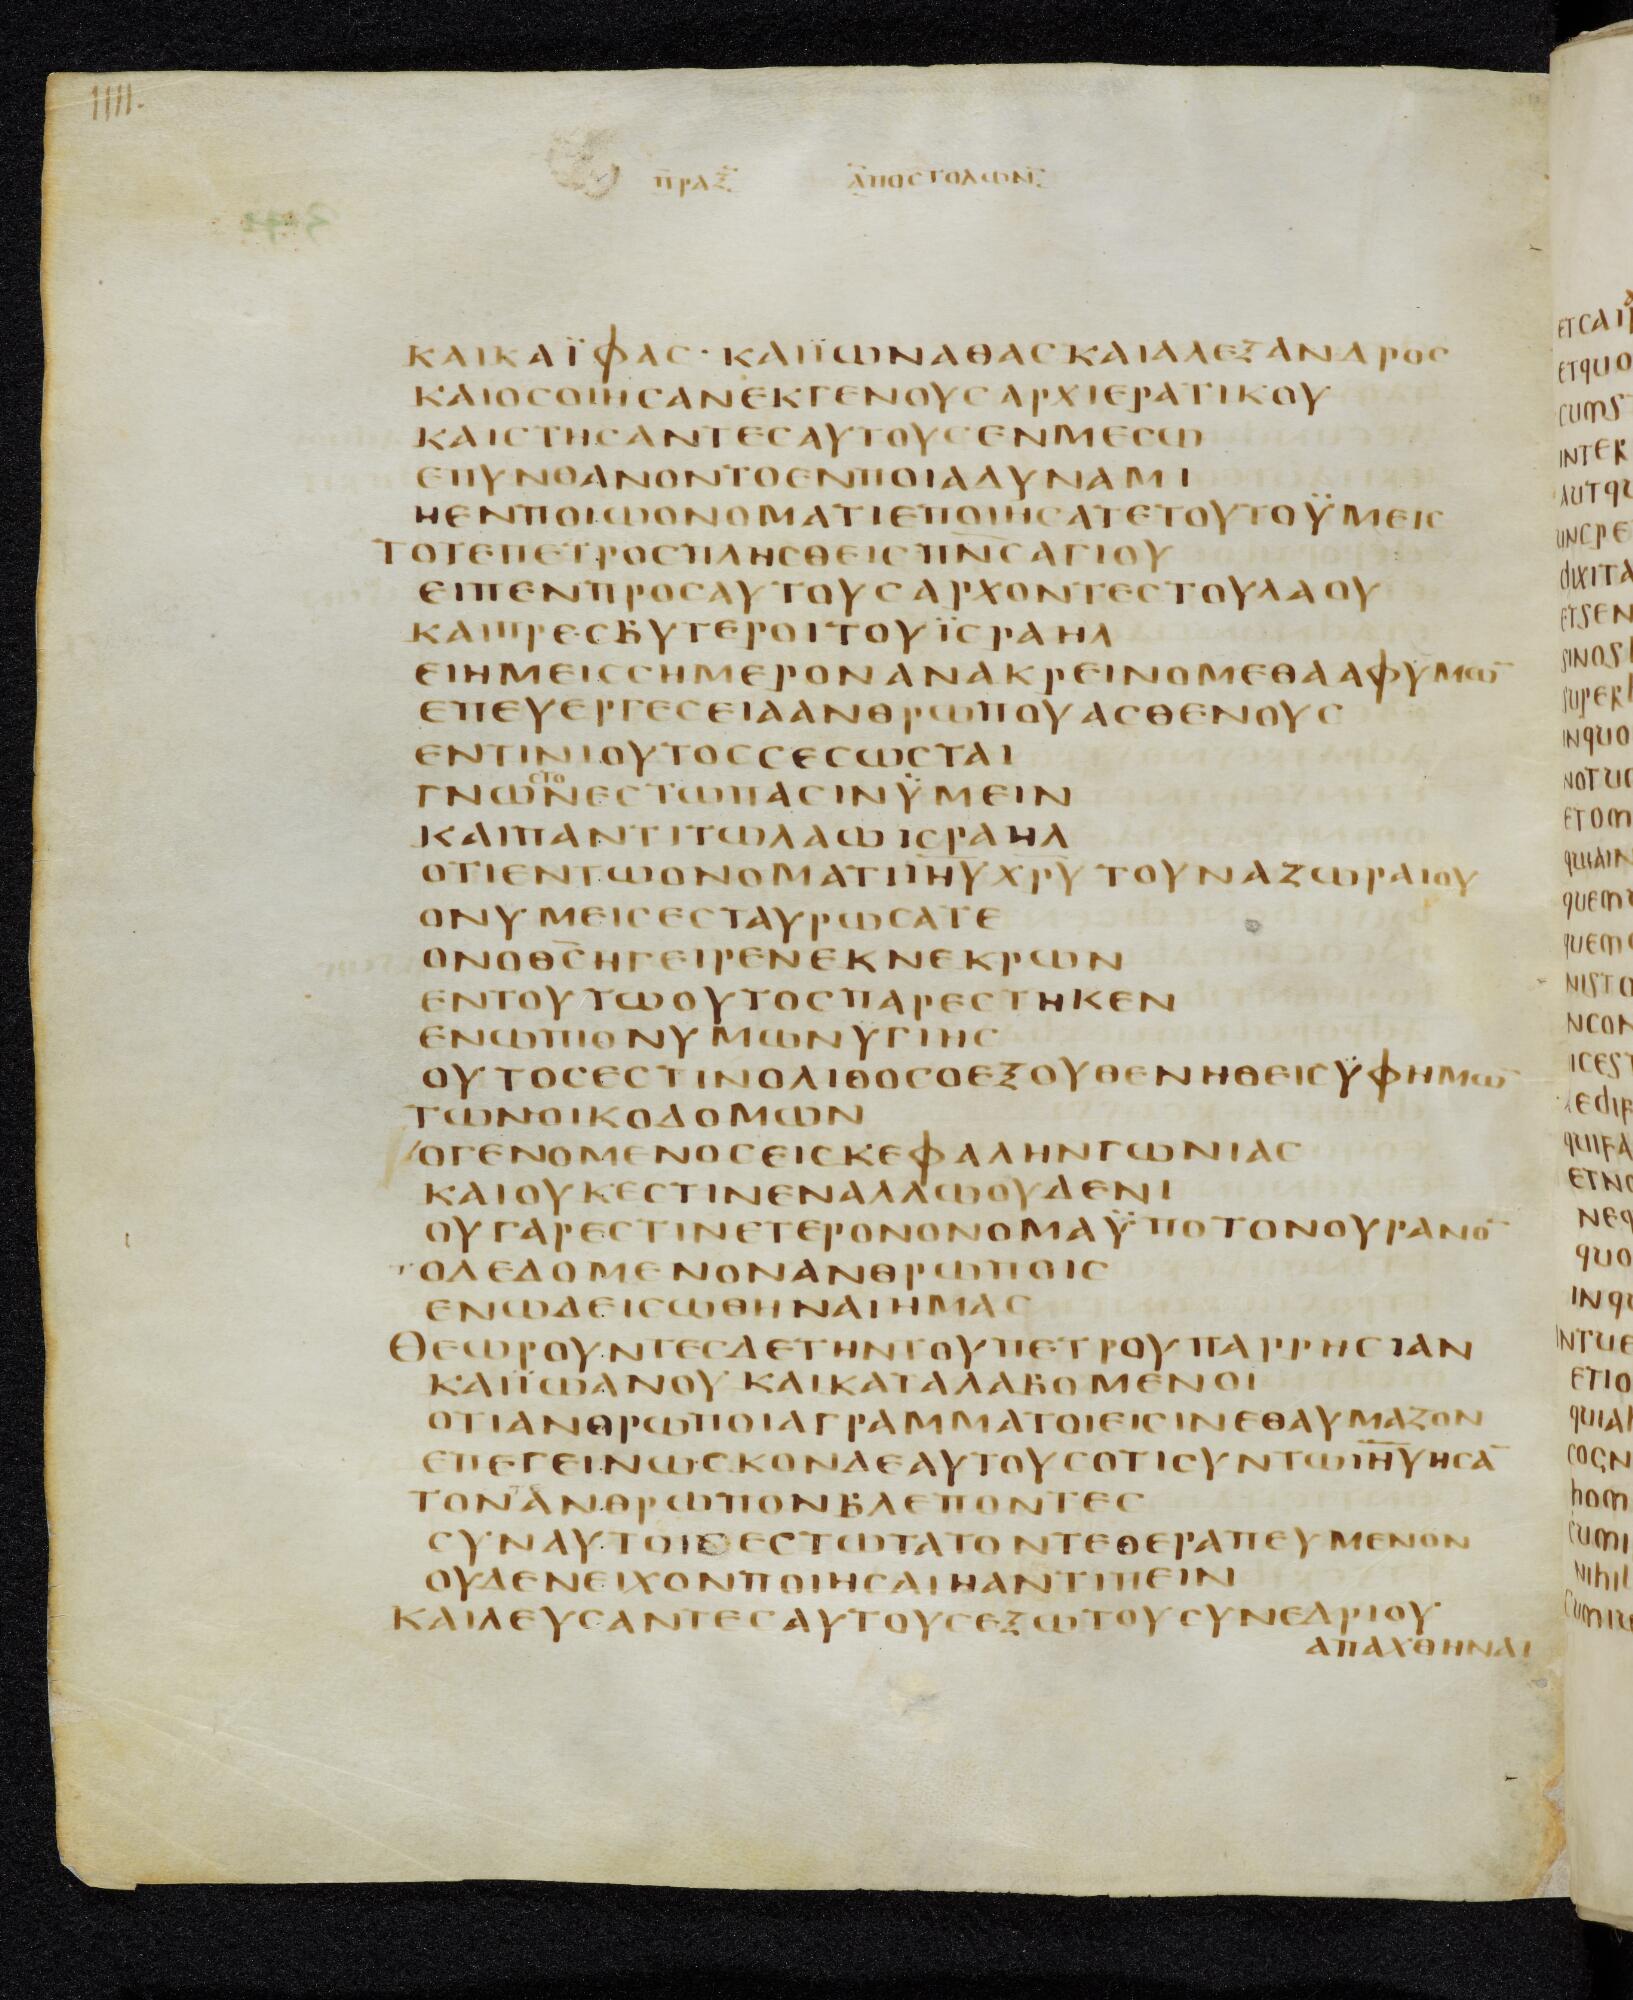 IIII.
ΠΡΑΞ ΑΠΟΣΤΟΛΩΝ
ΚΑΙΚΑΪΦΑΣ·ΚΑΙΪΩΝΑΘΑΣΚΑΙΑΛΕΞΑΝΔΡΟΣ
ΚΑΙΟΣΟΙΗΣΑΝΕΚΓΕΝΟΥΣΑΡΧΙΕΡΑΤΙΚΟΥ
ΚΑΙΣΤΗΣΑΝΤΕΣΑΥΤΟΥΣΕΝΜΕΣΩ
ΕΠΥΝΘΑΝΟΝΤΟΕΝΠΟΙΑΔΥΝΑΜΙ
ΗΕΝΠΟΙΩΟΝΟΜΑΤΙΕΠΟΙΗΣΑΤΕΤΟΥΤΟΫΜΕΙΣ
ΤΟΤΕΠΕΤΡΟΣΠΛΗΣΘΕΙΣΠ̅Ν̅Σ̅ΑΓΙΟΥ
ΕΙΠΕΝΠΡΟΣΑΥΤΟΥΣΑΡΧΟΝΤΕΣΤΟΥΛΑΟΥ
ΚΑΙΠΡΕΣΒΥΤΕΡΟΙΤΟΥΪΣΡΑΗΛ
ΕΙΗΜΕΙΣΣΗΜΕΡΟΝΑΝΑΚΡΕΙΝΟΜΕΘΑΑΦΥΜΩ̅
ΕΠΕΥΕΡΓΕΣΕΙΑΑΝΘΡΩΠΟΥΑΣΘΕΝΟΥΣ
ΕΝΤΙΝΙΟΥΤΟΣΣΕΣΩΣΤΑΙ
ΣΤΟ
ΓΝΩΝΕΣΤΩΠΑΣΙΝΫΜΕΙΝ
ΚΑΙΠΑΝΤΙΤΩΛΑΩΙΣΡΑΗΛ
ΟΤΙΕΝΤΩΟΝΟΜΑΤΙΙ̅Η̅Υ̅Χ̅Ρ̅Υ̅ΤΟΥΝΑΖΩΡΑΙΟΥ
ΟΝΥΜΕΙΣΕΣΤΑΥΡΩΣΑΤΕ
ΟΝΟΘ̅Σ̅ΗΓΕΙΡΕΝΕΚΝΕΚΡΩΝ
ΕΝΤΟΥΤΩΟΥΤΟΣΠΑΡΕΣΤΗΚΕΝ
ΕΝΩΠΙΟΝΥΜΩΝΥΓΙΗΣ
ΟΥΤΟΣΕΣΤΙΝΟΛΙΘΟΣΟΕΞΟΥΘΕΝΗΘΕΙΣΫΦΗΜΩ̅
ΤΩΝΟΙΚΟΔΟΜΩΝ
ΟΓΕΝΟΜΕΝΟΣΕΙΣΚΕΦΑΛΗΝΓΩΝΙΑΣ
ΚΑΙΟΥΚΕΣΤΙΝΕΝΑΛΛΩΟΥΔΕΝΙ
ΟΥΓΑΡΕΣΤΙΝΕΤΕΡΟΝΟΝΟΜΑΫΠΟΤΟΝΟΥΡΑΝΟ̅
ΟΔΕΔΟΜΕΝΟΝΑΝΘΡΩΠΟΙΣ
ΕΝΩΔΕΙΣΩΘΗΝΑΙΗΜΑΣ
ΘΕΩΡΟΥΝΤΕΣΔΕΤΗΝΤΟΥΠΕΤΡΟΥΠΑΡΡΗΣΙΑΝ
ΚΑΙΪΩΑΝΟΥΚΑΙΚΑΤΑΛΑΒΟΜΕΝΟΙ
ΟΤΙΑΝΘΡΩΠΟΙΑΓΡΑΜΜΑΤΟΙΕΙΣΙΝΕΘΑΥΜΑΖΟΝ
ΕΠΕΓΕΙΝΩΣΚΟΝΔΕΑΥΤΟΥΣΟΤΙΣΥΝΤΩΙ̅Η̅Υ̅ΗΣΑ̅
ΤΟΝΑΝΘΡΩΠΟΝΒΛΕΠΟΝΤΕΣ
ΣΥΝΑΥΤΟΙΣΕΣΤΩΤΑΤΟΝΤΕΘΕΡΑΠΕΥΜΕΝΟΝ
ΟΥΔΕΝΕΙΧΟΝΠΟΙΗΣΑΙΗΑΝΤΙΠΕΙΝ
ΚΑΙΛΕΥΣΑΝΤΕΣΑΥΤΟΥΣΕΞΩΤΟΥΣΥΝΕΔΡΙΟΥ
ΑΠΑΧΘΗΝΑΙ